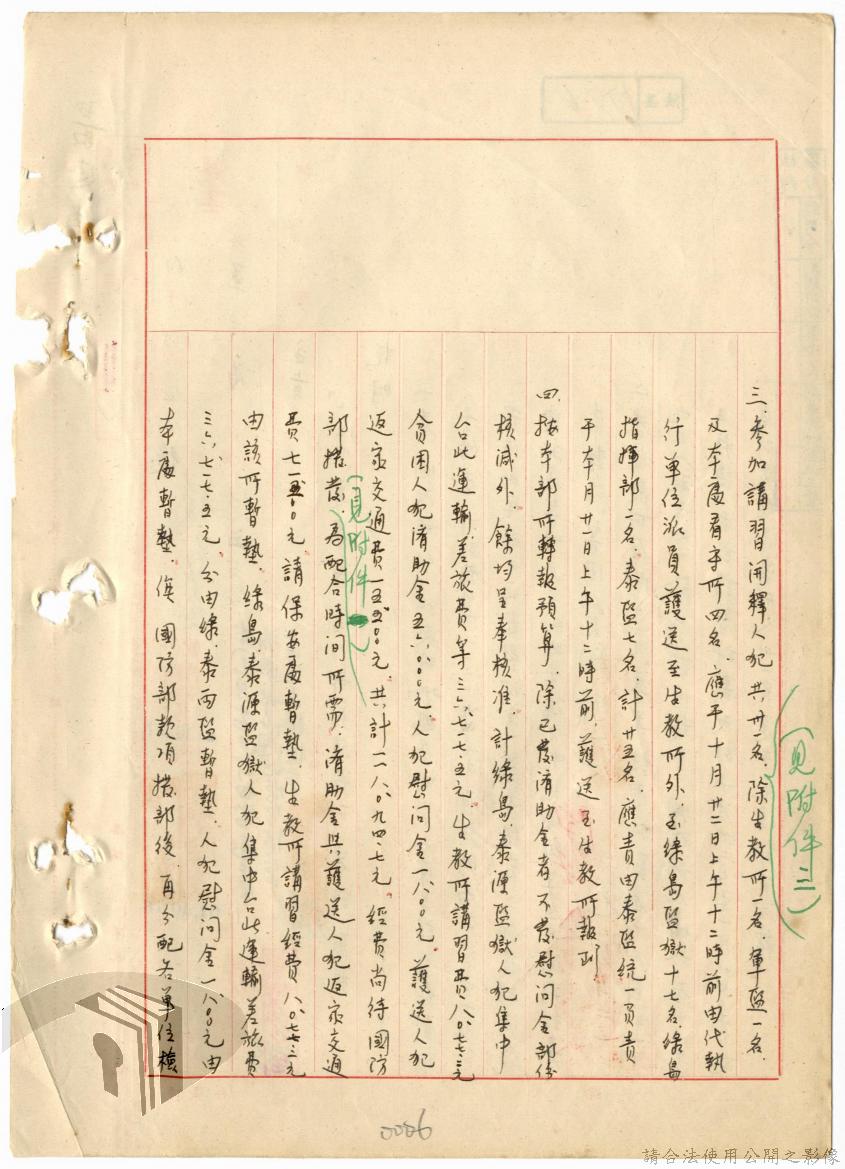 三、參加講習開釋人犯共卅一名，除生教所一名，軍監一名，
及本處看守所四名，應于十月廿二日上午十二時前由代執
行單位派員護送至生教所外，至綠島監獄十七名，綠島
指揮部一名，泰監七名，計廿五名，應責由泰監統一負責
于本月廿一日上午十二時前，護送至生教所報到
四、按本部所轉報預算，除已發濟助金者不發慰问金部份
核減外，餘均呈奉核准，計綠島，泰源監獄人犯集中
台北運輸差旅費等三六、七一七、五元，生教所講習費八、〇七七、三元
貧困人犯濟助金五六、〇〇〇元，人犯慰问金一八、〇〇元，護送人犯
返家交通費一五五〇〇元，共計一一八、〇九四、七元，經費尚待國防
部撥發，為配合時间所需，濟助金與護送人犯返家交通
費七一五〇〇元，請保安處暫墊，生教所講習經費八、〇七七、三元
由該所暫墊，綠島，泰源監獄人犯集中台北運輸差旅費
三六、七一七、五元，分由綠，泰兩監暫墊，人犯慰问金一八、〇〇元由
本處暫墊，俟 國防部款項撥部後，再分配各單位檢
（見附件二）
（見附件一）
0006
請合法使用公開之影像